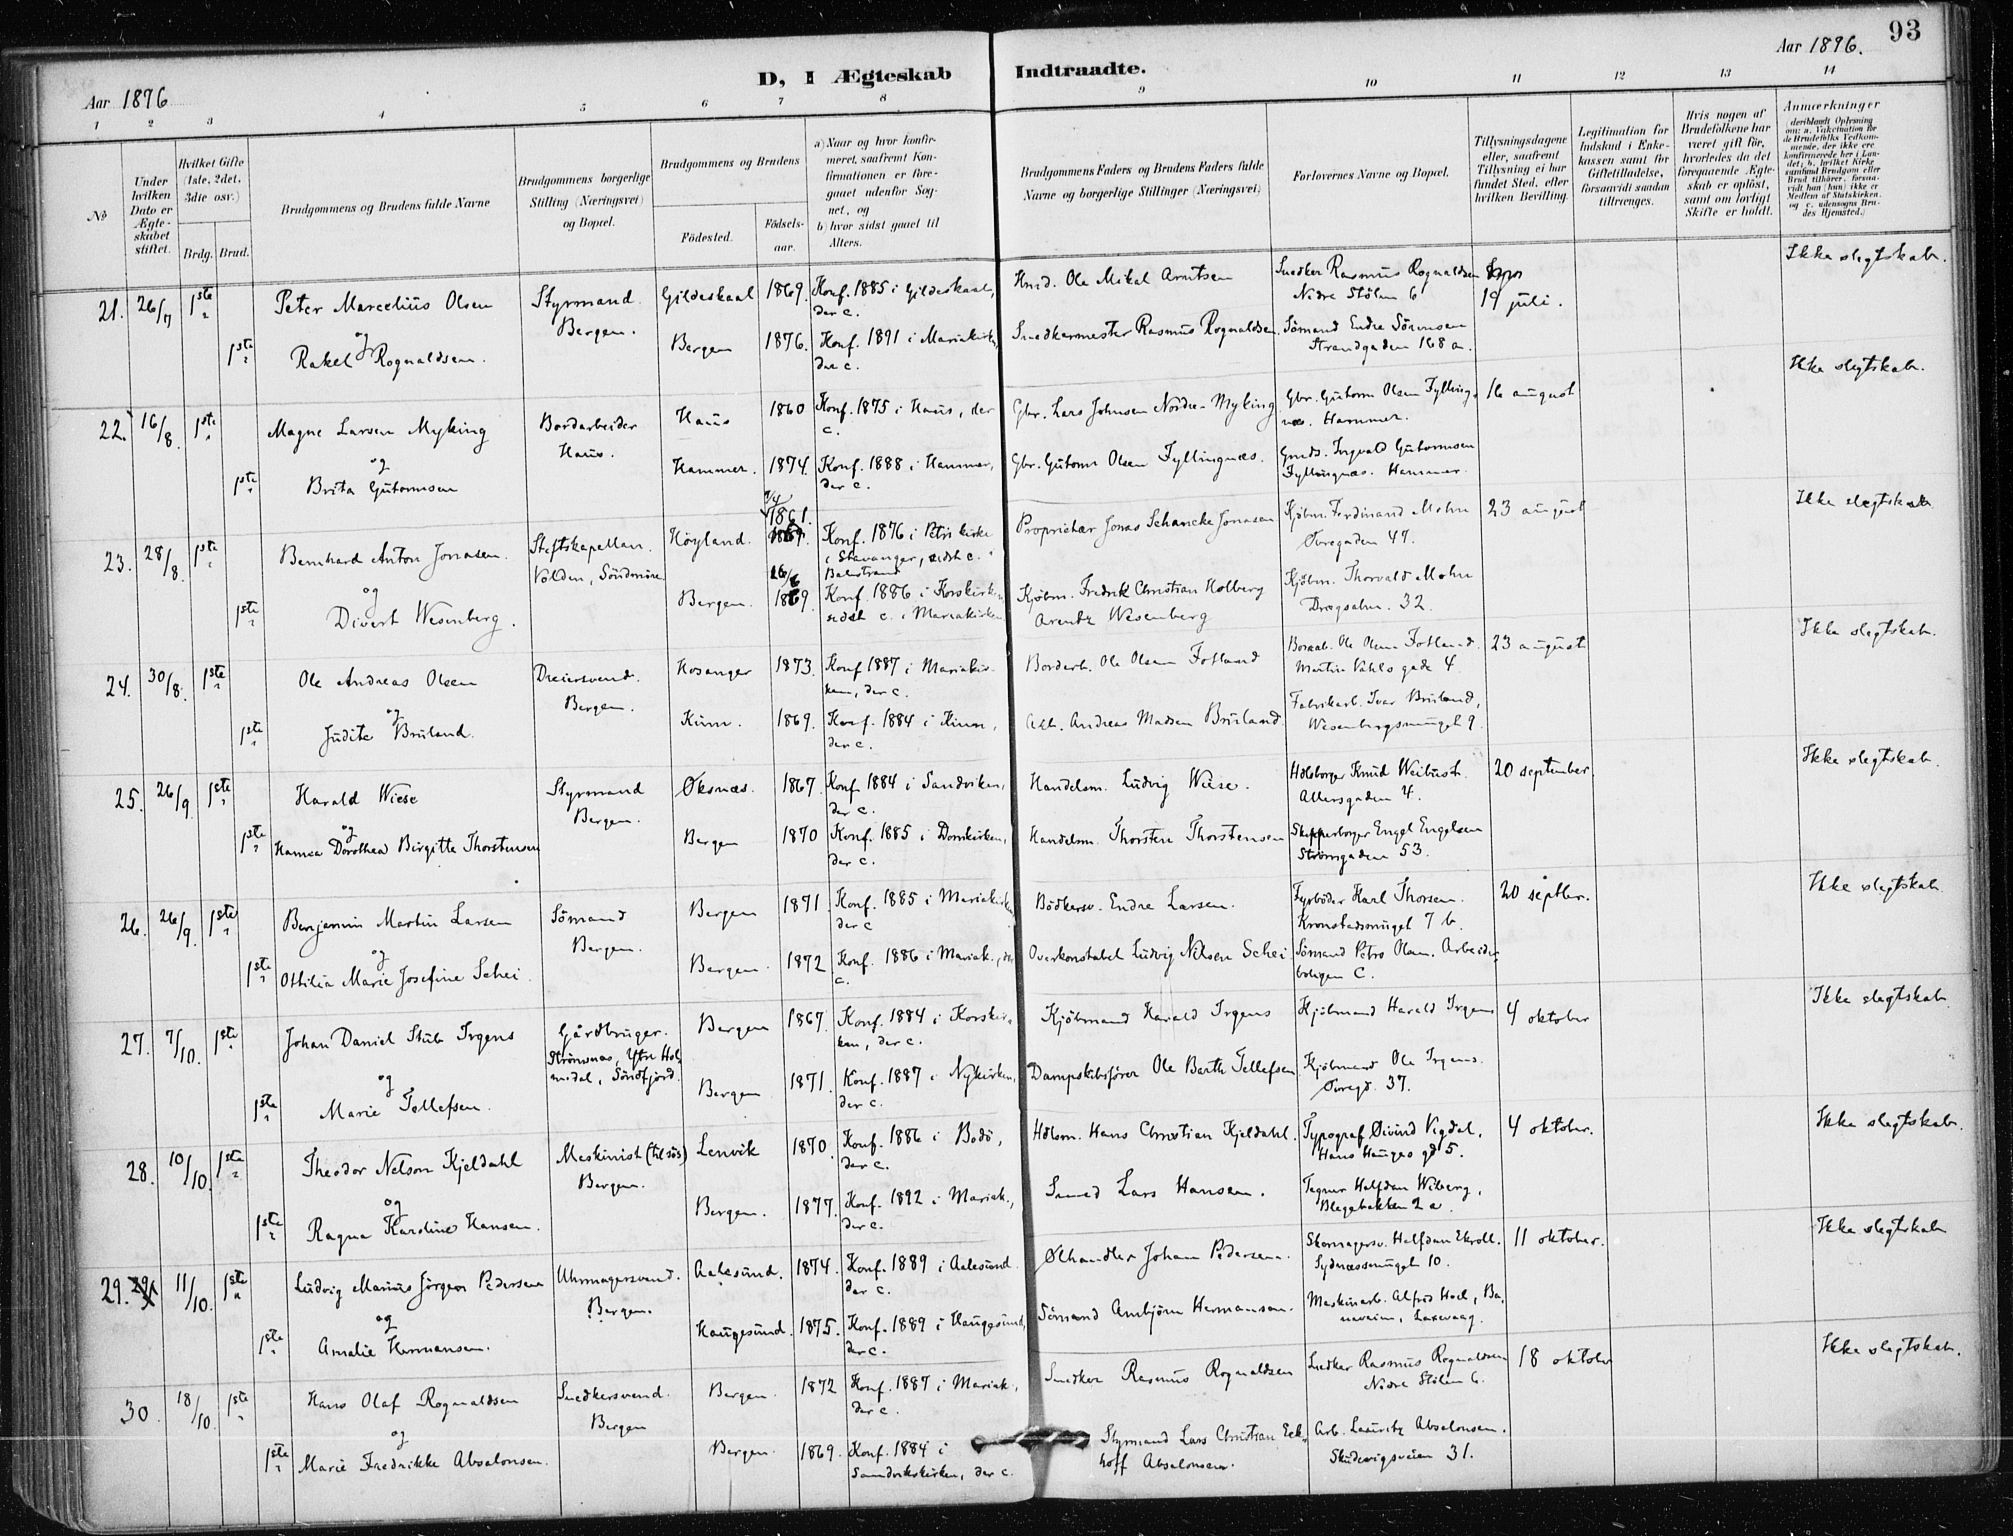 93
Aar 1896.
D, I Ægteskab Indtraadte.
Aar 1896
1 2 3 4 5 6 7 8 9 10 11 12 13 14
No
Under hvilken Dato er Ægteskabet stiftet.
Hvilket Gifte (1ste, 2det, 3die osv.)
Brdg. Brud.
Brudgommens og Brudens fulde Navne
Brudgommens borgerlige Stilling (Næringsvei) og Bopæl.
Brudgommens og Brudens
Fødested.
Fødsels-aar.
a) Naar og hvor konfirmeret, saafremt Konfirmationen er foregaaet udenfor Sognet, og
b) hvor sidst gaaet til Alters.
Brudgommens Faders og Brudens Faders fulde Navne og borgerlige Stillinger (Næringsvei)
Forlovernes Navne og Bopæl.
Tillysningsdagene eller, saafremt Tillysning ei har fundet Sted, efter hvilken Bevilling.
Legitimation for Indskud i Enkekassen samt for Giftetilladelse, forsaavidt saadan tiltrænges.
Hvis nogen af Brudefolkene har været gift før, hvorledes da det foregaaende Ægteskab er opløst, samt om lovligt Skifte er holdt.
Anmærkninger (deriblandt Oplysning om: a. Vakcination for de Brudefolks Vedkommende, der ikke ere konfirmerede her i Landet; b. hvilket Kirkesamfund Brudgom eller Brud tilhører, forsaavidt han (hun) ikke er Medlem af Statskirken, og c. udensogns Brudes Hjemsted.)
21. 26/7 1ste Peter Marcelius Olsen Styrmand Bergen. Gildeskaal 1869. Konf. 1885 i Gildeskaal, der c. Ole Mikal Arntsen Snedker Rasmus Rognaldsen Nedre Stølen 6 19 juli. Ikke slegtskab.
og
1ste Rakel Rognaldsen. Bergen 1876. Konf. 1891 i Mariakirken, der c. Snedkermester Rasmus Rognaldsen. Sömand Endre Sörensen Strandgaden 168 a.
22. 16/8. 1ste Magne Larsen Myking Bordarbeider Haus. Haus 1860 Konf. 1875 i Haus, der c. Gbr. Lars Johnsen Nordre-Myking Gbr. Gutorm Olsen Fyllingsnæs. Hammer. 16 august Ikke slegtskab.
og
1ste Brita Gutormsen Hammer. 1874. Konf. 1888 i Hammer, der c. Gbr. Gutorm Olsen Fyllingnæs. Ingvald Gutormsen Fyllingnæs. Hammer.
23. 28/8. 1ste Bernhard Anton Jonasen. Stiftskapellan. Volden, Söndmöre Höyland. 1861. Konf. 1876 i Petri kirke i Stavanger, sidst c. i Balestrand Proprietær Jonas Schancke Jonasen Kjöbm. Ferdinand Mohn Øvregaden 47. 23 august Ikke slegtskab
og
1ste Divert Wesenberg. Bergen. 26/6 1869. Konf. 1886 i Korskirken sidst c. i Mariakirken Kjöbm. Fredrik Christian Holberg Arentz Wesenberg Kjöbm. Thorvald Mohn Dregsalm. 32.
24. 30/8. 1ste Ole Andreas Olsen Dreiersvend. Bergen. Hosanger 1873. Konf. 1887 i Mariakirken, der c. Bordarb. Ole Olsen Fotland Bordarb. Ole Olsen Fotland. Martin Vahls gade 4. 23 august Ikke slegtskab.
og
1ste Judite Bruland. Kinn. 1869. Konf. 1884 i Kinn, der c. Arb. Andreas Madsen Bruland. Fabrikarb. Ivar Bruland, Wesenbergsmuget 9.
25. 26/9. 1ste Harald Wiese Styrmand Bergen. Øksnæs. 1867. Konf. 1884 i Sandviken, der c. Handelsm. Ludvig Wiese. Hdlsborger Knud Weibust. Allersgaden 4. 20 september. Ikke slegtskab.
og
1ste Hanna Dorothea Birgitte Thorstensen Bergen 1870 Konf. 1885 i Domkirken, der c. Handelsm. Thorsten Thorstensen Skipperborger Engel Engelsen Strömgaden 53.
26. 26/9. 1ste Benjamin Martin Larsen Sömand Bergen. Bergen 1871. Konf. 1885 i Mariakirken der c Bödkersv. Endre Larsen. Fyrböder Karl Thorsen. Kronstadsmuget 7 b. 20 septbr. Ikke slegtskab.
og
1ste Ottilia Marie Josefine Schei. Bergen. 1872 Konf. 1886 i Mariak., der c. Overkonstabel Ludvig Nilsen Schei. Sömand Petro Olsen. Arbeiderboligen C.
27. 7/10. 1ste Johan Daniel Stub Irgens Gårdbruger. Strömsnæs, Ytre Holmedal, Söndfjord. Bergen 1867. Konf. 1884 i Korskirken, der c. Kjöbmand Harald Irgens Kjöbmand Harald Irgens 4 oktober Ikke slegtskab
og
1ste Marie Tellefsen. Bergen 1871. Konf. 1887 i Nykirken, der c. Dampskibsförer Ole Barth Tellefsen. Kjöbmand Ole Irgens. Øvregd. 37.
28. 10/10. 1ste Theodor Nelson Kjeldahl Maskinist (til søs) Bergen. Lenvik 1870. Konf. 1886 i Bodö, der c. Hdlsm. Hans Christian Kjeldahl. Typograf Øivind Vigdal, Hans Hauges gd 5. 4 oktober. Ikke slegtskab.
og
1ste Ragna Karoline Hansen. Bergen. 1877. Konf. 1892 i Mariak., der c. Smed Lars Hansen. Tegner Halfdan Wiberg, Blegebakken 2 a.
29. 11/10. 1ste Ludvig Marius Jörgen Pedersen Uhrmagersvend. Bergen. Aalesund. 1874. Konf. 1889 i Aalesund. der c. Ølhandler Johan Pedersen. Skomagersv. Halfdan Ekroll. Sydnæssmuget 10. 11 oktober. Ikke slegtskab
og
1ste Amalie Hermansen. Haugesund. 1875. Konf. 1889 i Haugesund, der c. Sömand Arnbjörn Hermansen. Maskinarb. Alfred Hoel, Laxevaag.
30. 18/10. 1ste Hans Olaf Rognaldsen Snedkersvend. Bergen Bergen. 1872 Konf. 1887 i Mariak., der c. Snedker Rasmus Rognaldsen Snedker Rasmus Rognaldsen Nedre Stölen 6. 18 oktober Ikke slegtskab.
og
1ste Marie Fredrikke Absalonsen. Bergen. 1869. Konf. 1884 i Sandvikskirken, der c. Styrmand Lars Christian Eckhoff Absalonsen. Arb. Lauritz Absalonsen. Skudevigsveien 31.